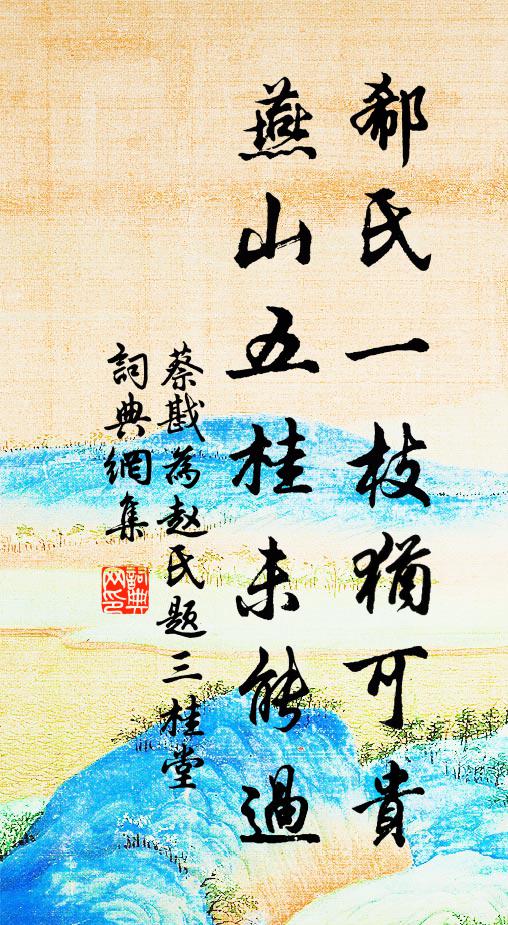 郗氏一枝猶可貴
燕山五桂未能過
蔡戡為赵氏題三桂堂
詞典網集
詞典網印